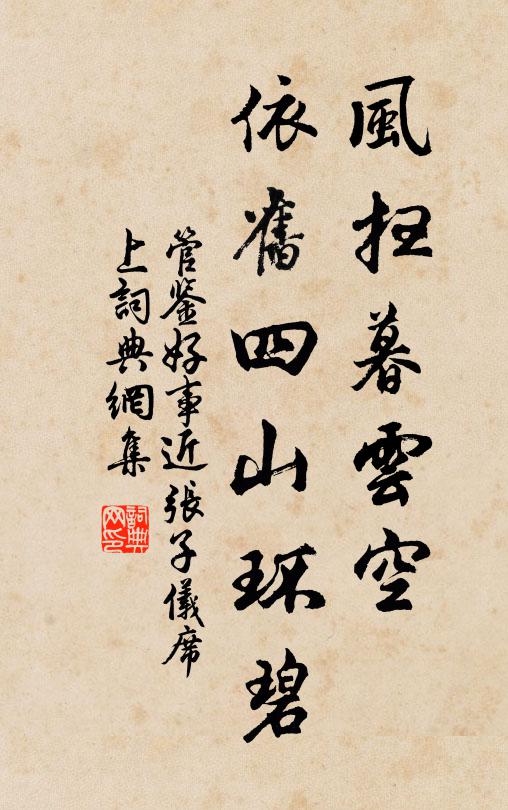 風扫暮雲空
依舊四山环碧
管鉴好事近張子儀席
上詞典網集
詞典
网印